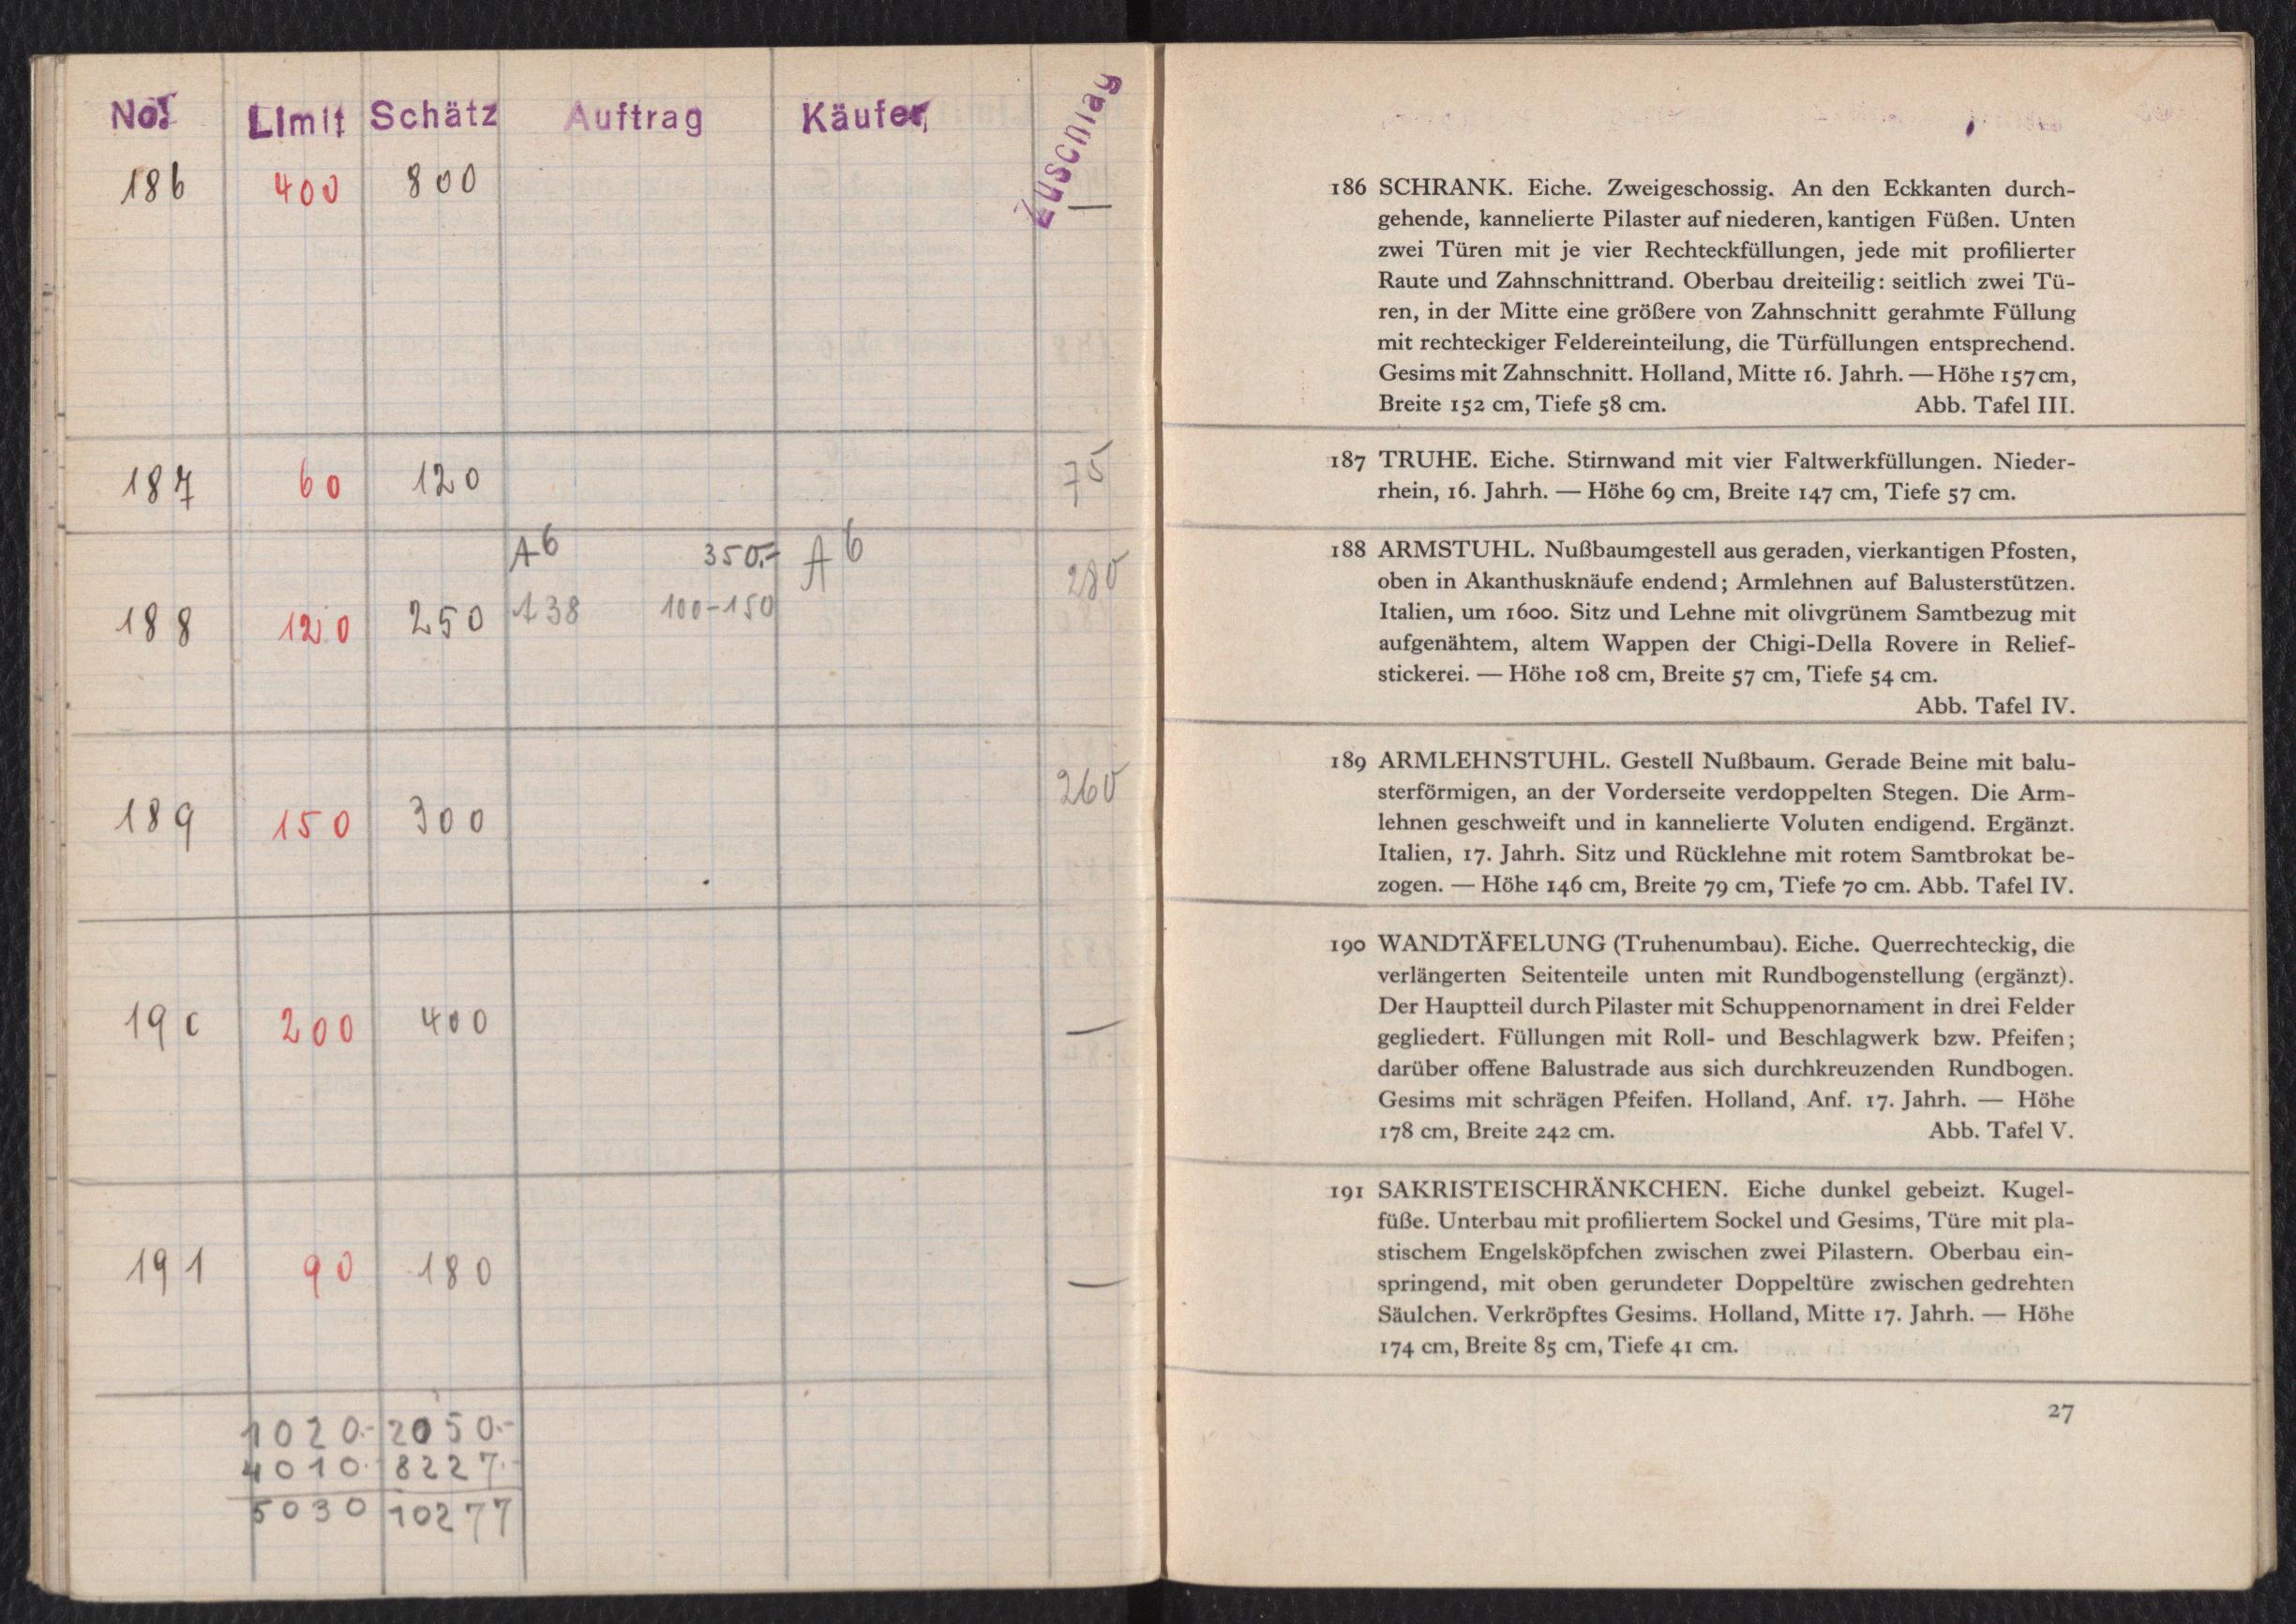 No. Limit Schätz Auftrag Käufer Zuschlag
186 400 800 —
187 60 120 75
A6 350.- A6
188 120 250 A38 100-150 280
189 150 300 260
190 200 400 —
191 90 180 —
1020.- 2050.-
4010.- 8227.-
5030 10277
186 SCHRANK. Eiche. Zweigeschossig. An den Eckkanten durch-
gehende, kannelierte Pilaster auf niederen, kantigen Füßen. Unten
zwei Türen mit je vier Rechteckfüllungen, jede mit profilierter
Raute und Zahnschnittrand. Oberbau dreiteilig: seitlich zwei Tü-
ren, in der Mitte eine größere von Zahnschnitt gerahmte Füllung
mit rechteckiger Feldereinteilung, die Türfüllungen entsprechend.
Gesims mit Zahnschnitt. Holland, Mitte 16. Jahrh. — Höhe 157 cm,
Breite 152 cm, Tiefe 58 cm. Abb. Tafel III.
187 TRUHE. Eiche. Stirnwand mit vier Faltwerkfüllungen. Nieder-
rhein, 16. Jahrh. — Höhe 69 cm, Breite 147 cm, Tiefe 57 cm.
188 ARMSTUHL. Nußbaumgestell aus geraden, vierkantigen Pfosten,
oben in Akanthusknäufe endend; Armlehnen auf Balusterstützen.
Italien, um 1600. Sitz und Lehne mit olivgrünem Samtbezug mit
aufgenähtem, altem Wappen der Chigi-Della Rovere in Relief-
stickerei. — Höhe 108 cm, Breite 57 cm, Tiefe 54 cm.
Abb. Tafel IV.
189 ARMLEHNSTUHL. Gestell Nußbaum. Gerade Beine mit balu-
sterförmigen, an der Vorderseite verdoppelten Stegen. Die Arm-
lehnen geschweift und in kannelierte Voluten endigend. Ergänzt.
Italien, 17. Jahrh. Sitz und Rücklehne mit rotem Samtbrokat be-
zogen. — Höhe 146 cm, Breite 79 cm, Tiefe 70 cm. Abb. Tafel IV.
190 WANDTÄFELUNG (Truhenumbau). Eiche. Querrechteckig, die
verlängerten Seitenteile unten mit Rundbogenstellung (ergänzt).
Der Hauptteil durch Pilaster mit Schuppenornament in drei Felder
gegliedert. Füllungen mit Roll- und Beschlagwerk bzw. Pfeifen;
darüber offene Balustrade aus sich durchkreuzenden Rundbogen.
Gesims mit schrägen Pfeifen. Holland, Anf. 17. Jahrh. — Höhe
178 cm, Breite 242 cm. Abb. Tafel V.
191 SAKRISTEISCHRÄNKCHEN. Eiche dunkel gebeizt. Kugel-
füße. Unterbau mit profiliertem Sockel und Gesims, Türe mit pla-
stischem Engelsköpfchen zwischen zwei Pilastern. Oberbau ein-
springend, mit oben gerundeter Doppeltüre zwischen gedrehten
Säulchen. Verkröpftes Gesims. Holland, Mitte 17. Jahrh. — Höhe
174 cm, Breite 85 cm, Tiefe 41 cm.
27